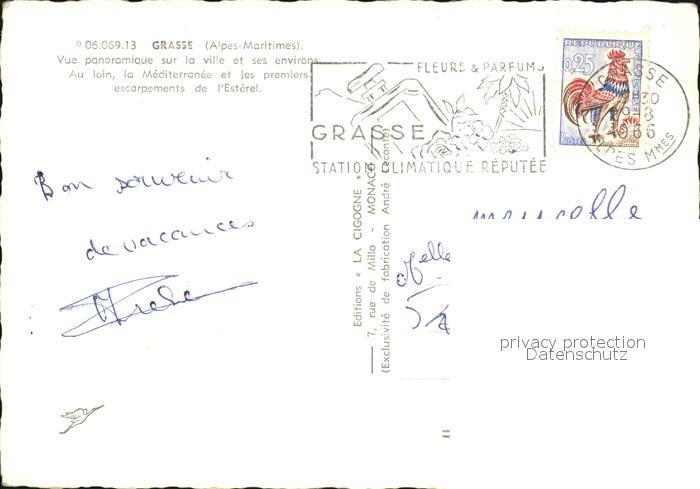 06.069.13 GRASSE (Alpes-Maritimes).
Vue panoramique sur la ville et ses environs
Au loin, la Méditerranée et les premiers
escarpements de l'Estérel.
FLEURS & PARFUMS
GRASSE
STATION CLIMATIQUE RÉPUTÉE
0,25
GRASSE
1966
ALPES Mmes
Bon souvenir
de vacances
Editions « LA CIGOGNE »
7, rue de Millo - MONACO
(Exclusivité de fabrication André Leconte)
Melle
marcelle
privacy protection
Datenschutz